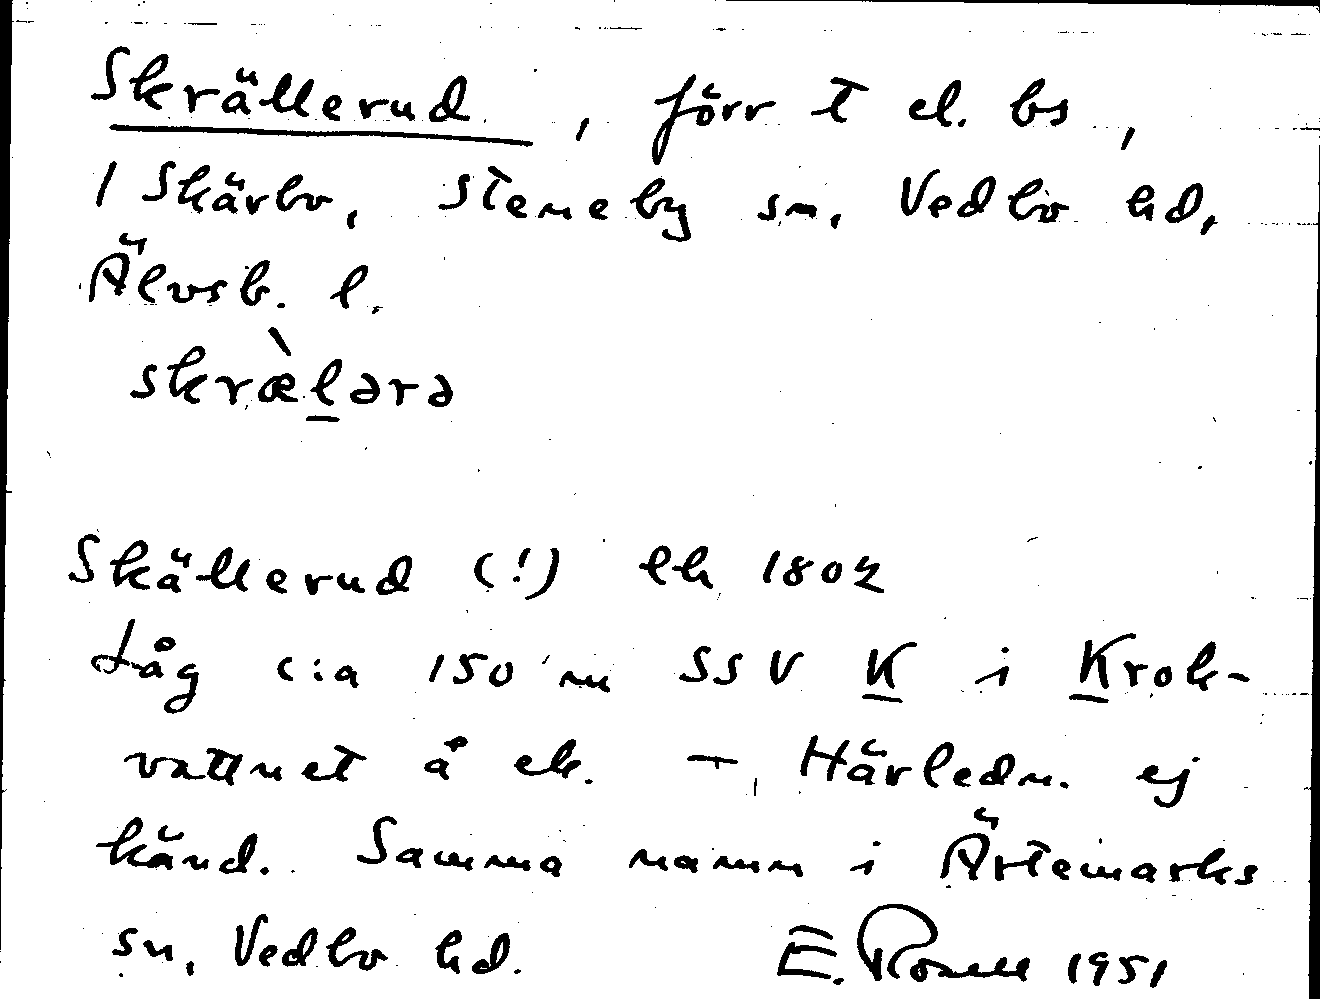 Skrällerud, förr t el. bs,
1 Skärbo, Steneby sn, Vedbo hd,
Älvsb. l.
skræ̀l̠ərə
Skällerud (!) lh 1802
Låg c:a 150 m SSV K i Krok-
vattnet å ek. — Härledn. ej
känd. Samma namn i Ärtemarks
sn, Vedbo hd. E. Rosell 1951